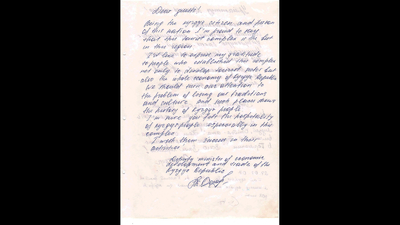 Dear guests!
Being the kyrgyz citizen and person
of this nation I'm proud to say
that this tourist complex is the best
in this region
I'd like to express my gratitude
to people who established this complex
not only to develop tourist sector but
also the whole economy of Kyrgyz Republic
We should turn our attention to
the problem of losing our traditions
and culture and this place shows
the history of kyrgyz people
I'm sure you felt the hospitality
of kyrgyz people especially in this
complex
I wish them success in their
activities
Deputy minister of economic
development and trade of the
Kyrgyz Republic